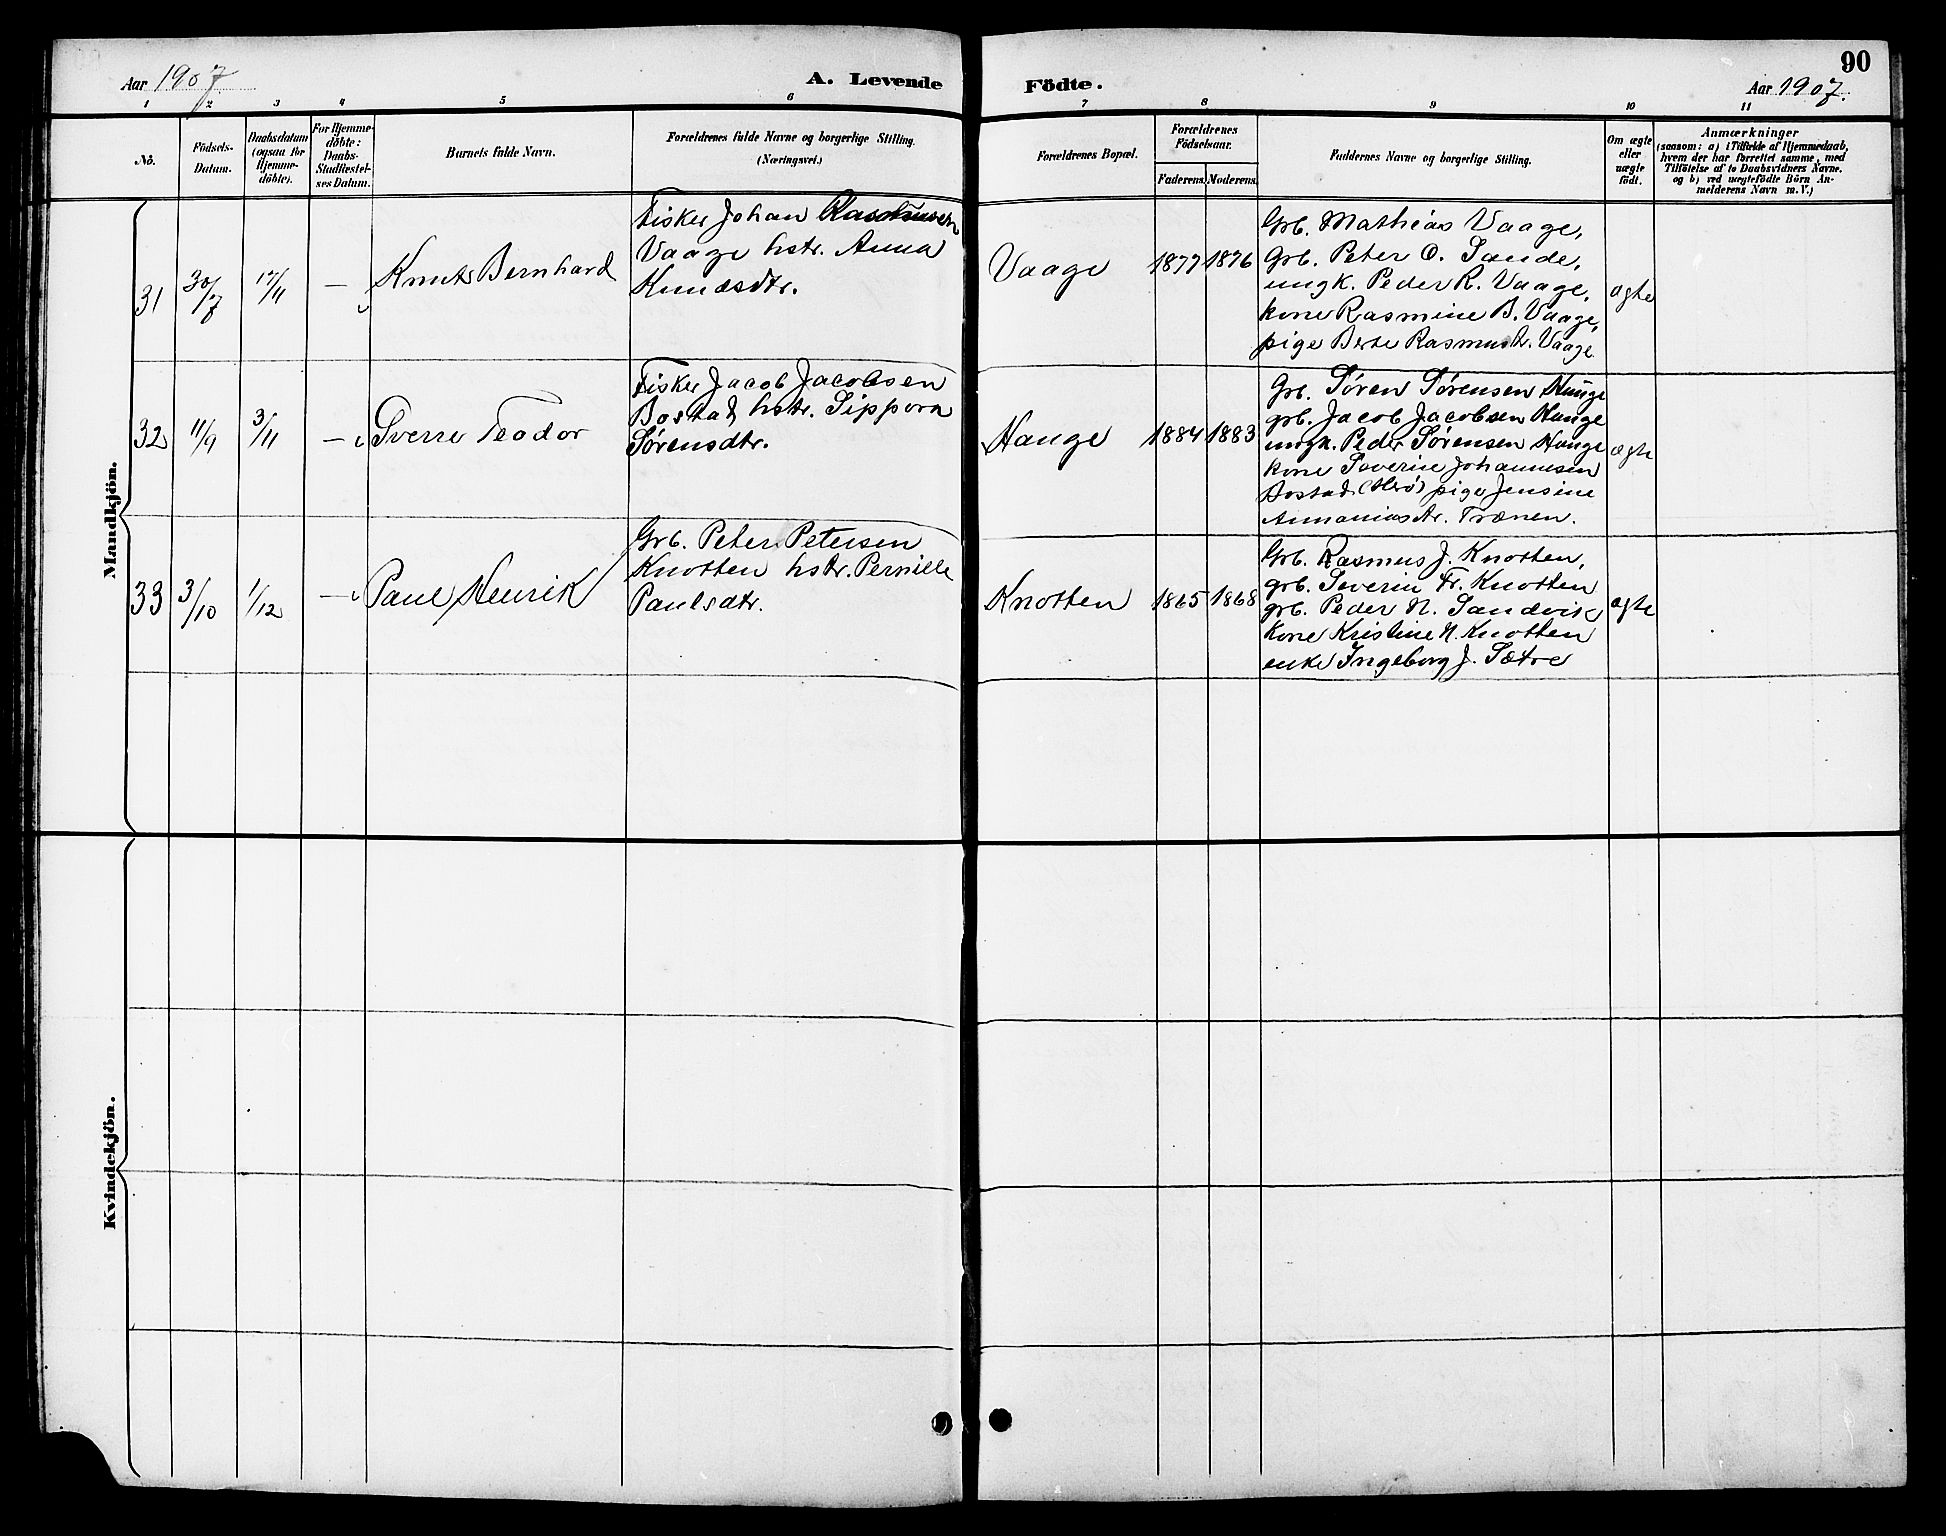 90
Aar 1907.
A. Levende
Födte.
Aar 1907.
1 2 3 4 5 6 7 8 9 10 11
No.
Födsels-
Datum.
Daabsdatum
(ogsaa for
Hjemme-
döbte).
For Hjemme-
döbte:
Daabs-
Stadfæstel-
ses Datum.
Barnets fulde Navn.
Forældrenes fulde Navne og borgerlige Stilling.
(Næringsvei.)
Forældrenes Bopæl.
Forældrenes
Födselsaar.
Faderens. Moderens.
Faddernes Navne og borgerlige Stilling.
Om ægte
eller
uægte
födt.
Anmærkninger
(saasom: a) i Tilfælde af Hjemmedaab,
hvem der har forrettet samme, med
Tilföielse af to Daabsvidners Navne.
og b) ved uægtefödte Börn An-
melderens Navn m. V.)
Mandkjön.
31
30/7
17/11
—
Knut Bernhard
Fisker Johan Rasmussen
Vaage hstr. Anna
Knudsdtr.
Vaage
1877 1876
Grb. Mathias Vaage,
Grb. Peter O. Sande,
ungk. Peder R. Vaage,
kone Rasmine B. Vaage,
pige Berte Rasmusdtr. Vaage
ægte
32
11/9
3/11
—
Sverre Teodor
Fisker Jacob Jacobsen
Bostad hstr. Sippora
Sørensdtr.
Hauge
1884 1883
Grb. Søren Sørensen Hauge
grb. Jacob Jacobsen Hauge
ungk. Peder Sørensen Hauge
kone Severine Johannesen
Bostad (Herø) pige Jensine
Annaniasdtr. Trænen.
ægte
33
3/10
1/12
—
Paul Henrik
Grb. Peter Petersen
Knotten hstr. Pernille
Paulsdtr.
Knotten
1865 1868
Grb. Rasmus J. Knotten,
grb. Severin Fr. Knotten
grb. Peder N. Sandvik
kone Kristine N. Knotten
enke Ingeborg J. Sætre
ægte
Kvindekjön.